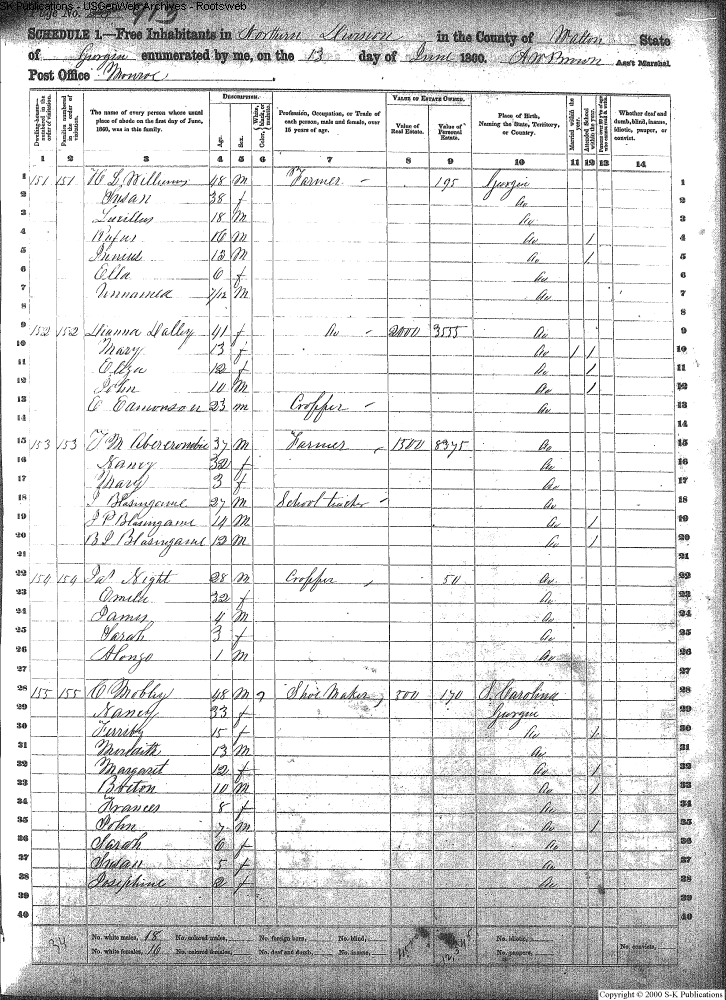 S-K Publications - USGenWeb Archives - Rootsweb
Page No. 913
SCHEDULE 1.—Free Inhabitants in Northern Division in the County of Walton State
of Georgia enumerated by me, on the 13 day of June 1860. A W Brown Ass't Marshal.
Post Office Monroe
Dwelling-houses—numbered in the order of visitation.
Families numbered in the order of visitation.
The name of every person whose usual place of abode on the first day of June, 1860, was in this family.
DESCRIPTION.
Age.
Sex.
Color, White, black, or mulatto.
Profession, Occupation, or Trade of each person, male and female, over 15 years of age.
VALUE OF ESTATE OWNED.
Value of Real Estate.
Value of Personal Estate.
Place of Birth, Naming the State, Territory, or Country.
Married within the year.
Attended School within the year.
Whether deaf and dumb, blind, insane, idiotic, pauper, or convict.
1 2 3 4 5 6 7 8 9 10 11 12 13 14
1 151 151 Williams 48 M Farmer 195 Georgia 1
2 Susan 38 f Do 2
3 Lucillus 18 M Do 3
4 Rufus 16 M Do / 4
5 13 M Do / 5
6 Ella 6 f Do 6
7 Unnamed 7/12 M Do 7
8 8
9 152 152 41 f Do 2000 3555 Do 9
10 Mary 13 f Do / / 10
11 Eliza 12 f Do / 11
12 John 10 M Do / 12
13 E Eamonson 23 m Cropper Do 13
14 14
15 153 153 Abercrombie 37 M Farmer 1500 8375 Do 15
16 Nancy 32 f Do 16
17 Mary 3 f Do 17
18 Blasingame 27 M School teacher Do 18
19 J P Blasingame 14 M Do / 19
20 B J Blasingame 12 M Do / 20
21 21
22 154 154 Jas Night 28 M Cropper 50 Do 22
23 32 f Do 23
24 James 4 M Do 24
25 Sarah 3 f Do 25
26 Alonzo 1 M Do 26
27 27
28 155 155 C Mobley 48 M Shoe Maker 500 170 S. Carolina 28
29 Nancy 33 f Georgia 29
30 Ferriby 15 f Do / 30
31 Merideth 13 M Do 31
32 Margaret 12 f Do / 32
33 Burton 10 M Do / 33
34 Frances 8 f Do 34
35 John 7 M Do / 35
36 Sarah 6 f Do 36
37 Susan 5 f Do 37
38 Josephine 2 f Do 38
39 39
40 40
34 No. white males, 18 No. colored males, No. foreign born, No. blind, No. idiotic, No. convicts,
No. white females, 16 No. colored females, No. deaf and dumb, No. insane, No. paupers,
Copyright © 2000 S-K Publications